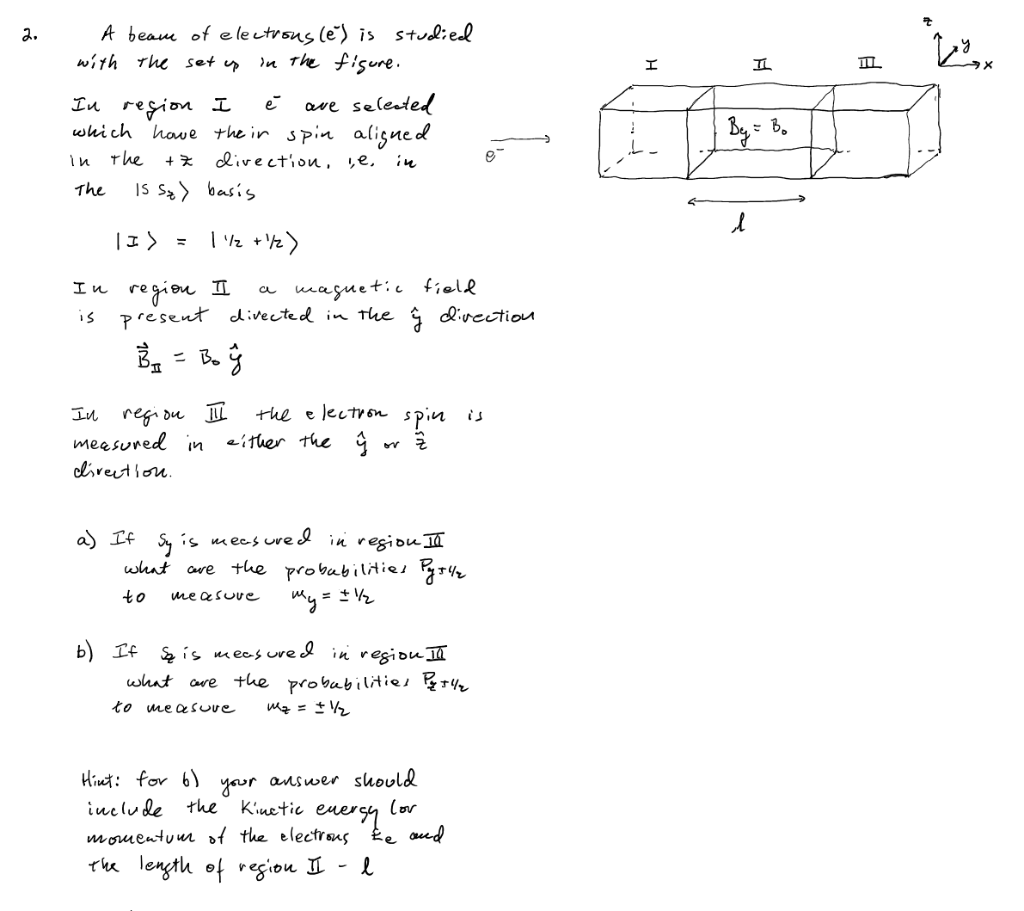 2. A beam of electrons (e⁻) is studied
with the set up in the figure.
In region I e⁻ are selected
which have their spin aligned
in the +z direction, i.e. in
the |S S_z⟩ basis
|I⟩ = |1/2 +1/2⟩
In region II a magnetic field
is present directed in the ŷ direction
B⃗_II = B₀ ŷ
In region III the electron spin is
measured in either the ŷ or ẑ
direction.
a) If S_y is measured in region III
what are the probabilities P_y±1/2
to measure m_y = ±1/2
b) If S_z is measured in region III
what are the probabilities P_z±1/2
to measure m_z = ±1/2
Hint: for b) your answer should
include the kinetic energy (or
momentum of the electrons E_e and
the length of region II - l
z
y
x
I II III
B_y = B₀
e⁻
l